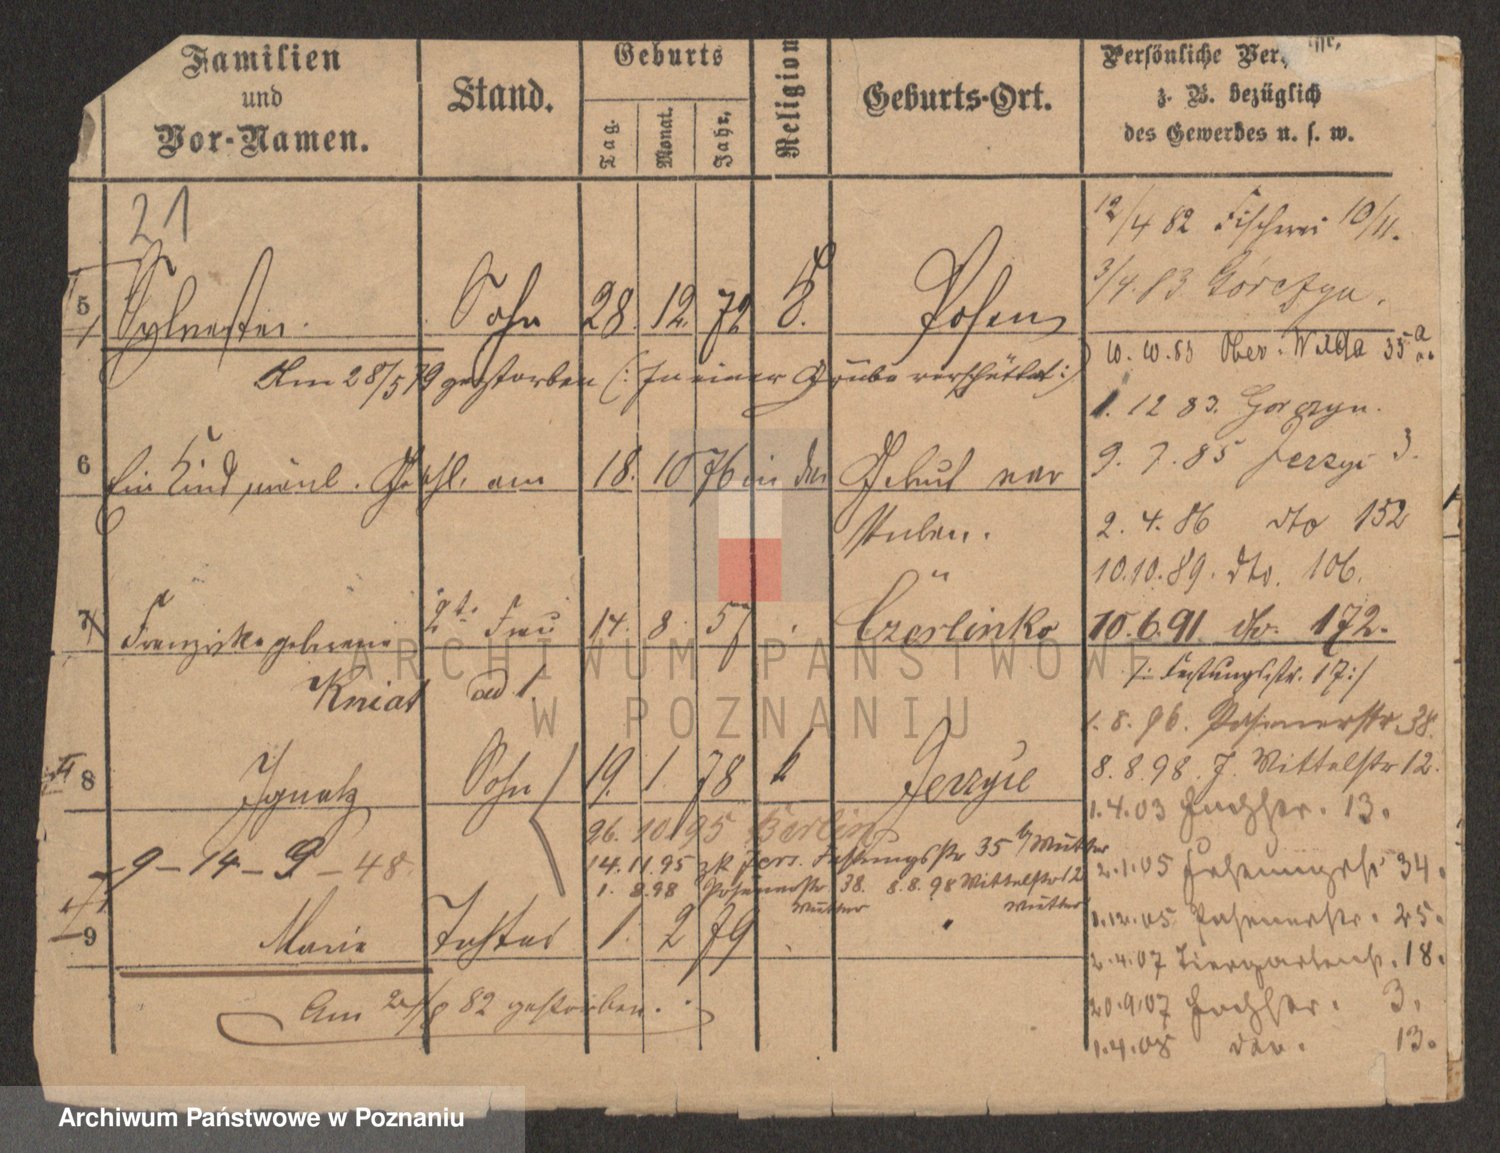 Familien
und
Vor-Namen.
Stand.
Geburts
Tag.
Monat.
Jahr.
Religion
Geburts-Ort.
Persönliche Ver
z. B. bezüglich
des Gewerbes u. s. w.
21
12/4 82 Fischerei 10/11.
3/4. 83 Górczyn.
5 Sylvester. Sohn 28. 12. 72 k. Posen
10. 10. 83 Ober-Wilda 35 a
Am 28/5 79 gestorben (: In einer Grube verschüttet :)
1. 12 83. Gorczyn.
6 Ein Kind männl. Geschl. am 18. 10 76 in der Geburt ver
9. 7. 85 Jerzyc 3.
storben.
2. 4. 86 dto 152
10. 10. 89. dto. 106.
7 Franziska geborene 2te Frau 14. 8 57 Czerlinko
10. 6. 91. do. 172.
Kniat ad 1.
/: Festungsstr. 17 :/
1. 8. 96. Posenerstr 38.
8 Ignatz Sohn 19. 1. 78 k Jerzyce
8. 8. 98. J. Mittelstr 12.
26. 10. 95 Berlin
1. 4. 03 13.
9 - 14 - 9 - 48
14. 11. 95 zk Jers. Festungsstr 35 b/Mutter
1. 8. 98 Posenerstr 38. 8. 8. 98 Mittelstr 12
Mutter Mutter
2. 1. 05 34.
9 Marie Tochter 1. 2 79
1. 12. 05 Posenerstr. 25.
2. 4. 07 Tiergartenstr. 18.
Am 24/8 82 gestorben.
20. 9. 07 3.
1. 4. 08 13.
ARCHIWUM PAŃSTWOWE
W POZNANIU
Archiwum Państwowe w Poznaniu